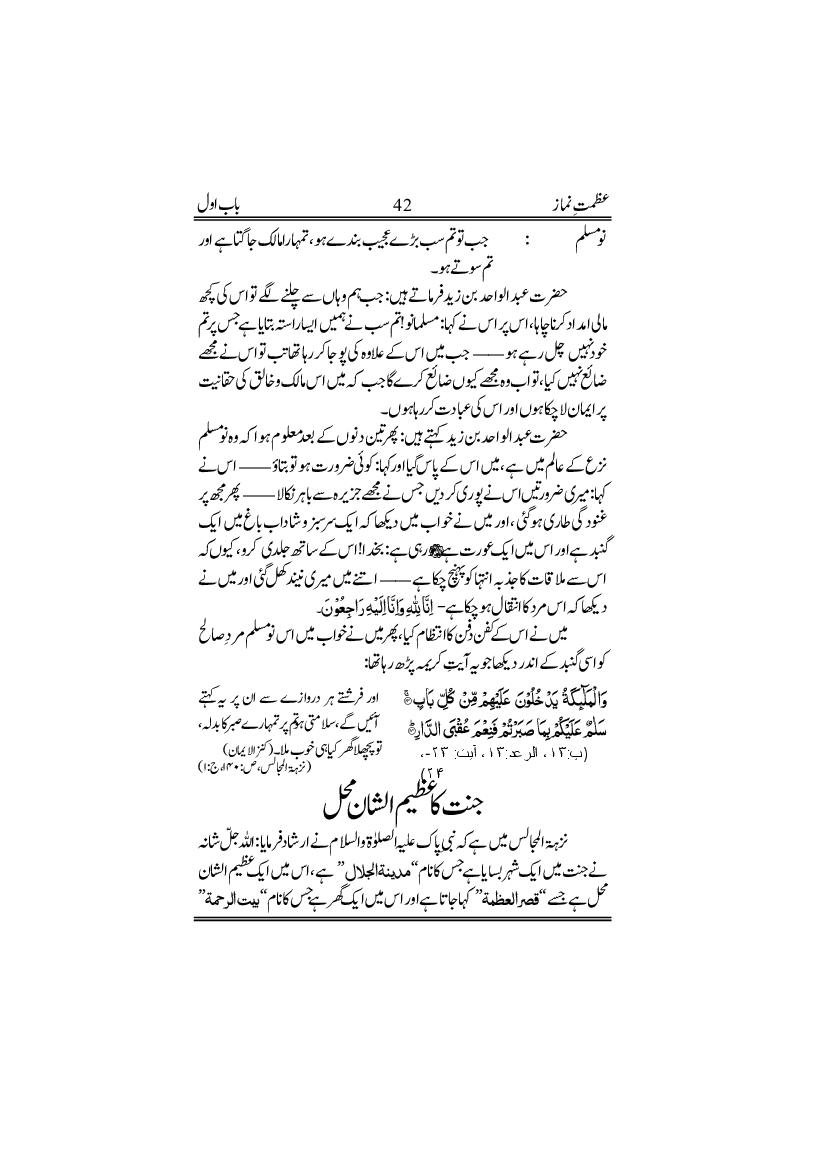 عظمتِ نماز 42 باب اول
نو مسلم : جب تو تم سب بڑے عجیب بندے ہو، تمہارا مالک جاگتا ہے اور
تم سوتے ہو۔
حضرت عبد الواحد بن زید فرماتے ہیں: جب ہم وہاں سے چلنے لگے تو اس کی کچھ
مالی امداد کرنا چاہا، اس پر اس نے کہا: مسلمانو! تم سب نے ہمیں ایسا راستہ بتایا ہے جس پر تم
خود نہیں چل رہے ہو —— جب میں اس کے علاوہ کی پوجا کر رہا تھا تب تو اس نے مجھے
ضائع نہیں کیا، تو اب وہ مجھے کیوں ضائع کرے گا جب کہ میں اس مالک و خالق کی حقانیت
پر ایمان لا چکا ہوں اور اس کی عبادت کر رہا ہوں۔
حضرت عبد الواحد بن زید کہتے ہیں: پھر تین دنوں کے بعد معلوم ہوا کہ وہ نو مسلم
نزع کے عالم میں ہے، میں اس کے پاس گیا اور کہا: کوئی ضرورت ہو تو بتاؤ —— اس نے
کہا: میری ضرورتیں اس نے پوری کر دیں جس نے مجھے جزیرہ سے باہر نکالا —— پھر مجھ پر
غنودگی طاری ہو گئی، اور میں نے خواب میں دیکھا کہ ایک سرسبز و شاداب باغ میں ایک
گنبد ہے اور اس میں ایک عورت رہی ہے: بخدا! اس کے ساتھ جلدی کرو، کیوں کہ
اس سے ملاقات کا جذبہ انتہا کو پہنچ چکا ہے —— اتنے میں میری نیند کھل گئی اور میں نے
دیکھا کہ اس مرد کا انتقال ہو چکا ہے- اِنَّا لِلّٰہِ وَاِنَّا اِلَیْہِ رَاجِعُوْنَ۔
میں نے اس کے کفن دفن کا انتظام کیا، پھر میں نے خواب میں اس نو مسلم مردِ صالح
کو اسی گنبد کے اندر دیکھا جو یہ آیتِ کریمہ پڑھ رہا تھا:
وَالْمَلٰٓئِکَةُ یَدْخُلُوْنَ عَلَیْهِمْ مِّنْ کُلِّ بَابٍ ۚ
سَلٰمٌ عَلَیْکُمْ بِمَا صَبَرْتُمْ فَنِعْمَ عُقْبَی الدَّارِ ؕ
(پ:۱۳، الرعد:۱۳، آیت: ۲۳-،
۲۴)
اور فرشتے ہر دروازے سے ان پر یہ کہتے
آئیں گے، سلامتی ہو تم پر تمہارے صبر کا بدلہ،
تو پچھلا گھر کیا ہی خوب ملا۔ (کنز الایمان)
(نزہۃ المجالس، ص: ۱۴۰، ج:۱)
جنت کا عظیم الشان محل
نزہۃ المجالس میں ہے کہ نبی پاک علیہ الصلوٰۃ والسلام نے ارشاد فرمایا: اللہ جلّ شانہ
نے جنت میں ایک شہر بسایا ہے جس کا نام “مدینة الجلال” ہے، اس میں ایک عظیم الشان
محل ہے جسے “قصر العظمة” کہا جاتا ہے اور اس میں ایک گھر ہے جس کا نام “بیت الرحمة”